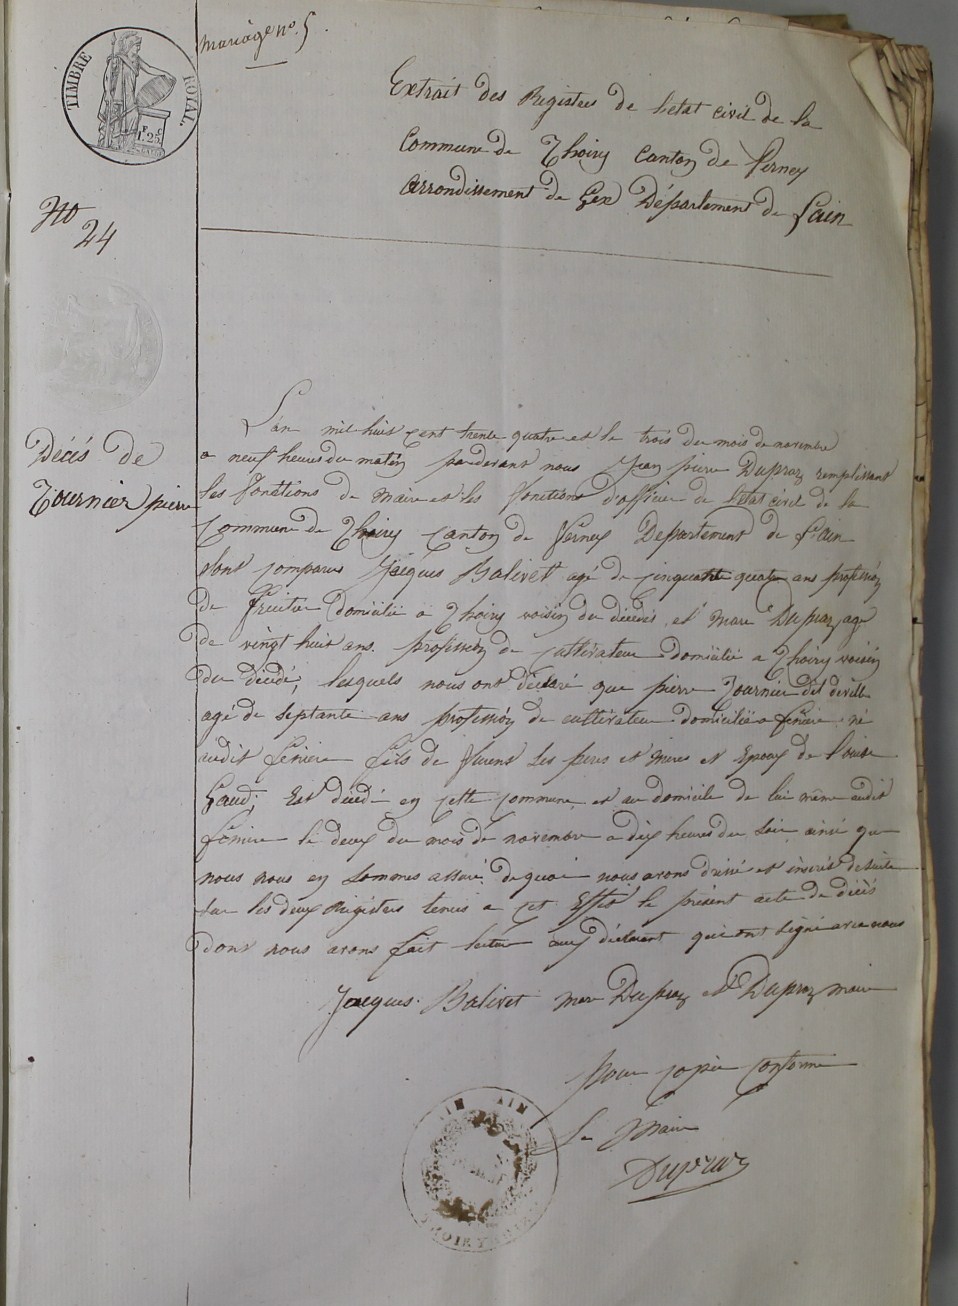 mariage n°. 5
TIMBRE ROYAL.
F. C
1.25.
Extrait des Registres de l'etat civil de la
Commune de Thoiry Canton de ferney
arrondissement de Gex Département de Lain
N°
24
Décés de
Tournier pierre
L'an mil huit cent trente quatre et le trois du mois de novembre
a neuf heures du matin pardevant nous Jean pierre Dupraz remplissant
les fonctions de maire et les fonctions d'officier de l'etat civil de la
Commune de Thoiry Canton de ferney Departement de l'ain
sont comparus Jacques Balivet agé de cinquante quatre ans profession
de fruitier domicilié a Thoiry voisin du décédés et marc Dupraz agé
de vingt huit ans profession de cultivateur domicilié a Thoiry voisin
du décédé, lesquels nous ont déclaré que pierre Tournier dit
agé de septante ans profession de cultivateur domicilié a feniere né
audit feniere fils de furent les peres et meres et Epoux de Louise
Gaud, Est décédé en cette commune et au domicile de lui même audit
feniere le deux du mois de novembre a dix heures du soir ainsi que
nous nous en sommes assuré de quoi nous avons dressé et inscris de suite
sur les deux Registers tenus a cet Effet le présent acte de décès
dont nous avons fait lecture aux déclarent qui ont signé avec nous
Jacques Balivet marc Dupraz et Dupraz maire
Pour copie conforme
Le Maire
Dupraz
AIN
THOIRY